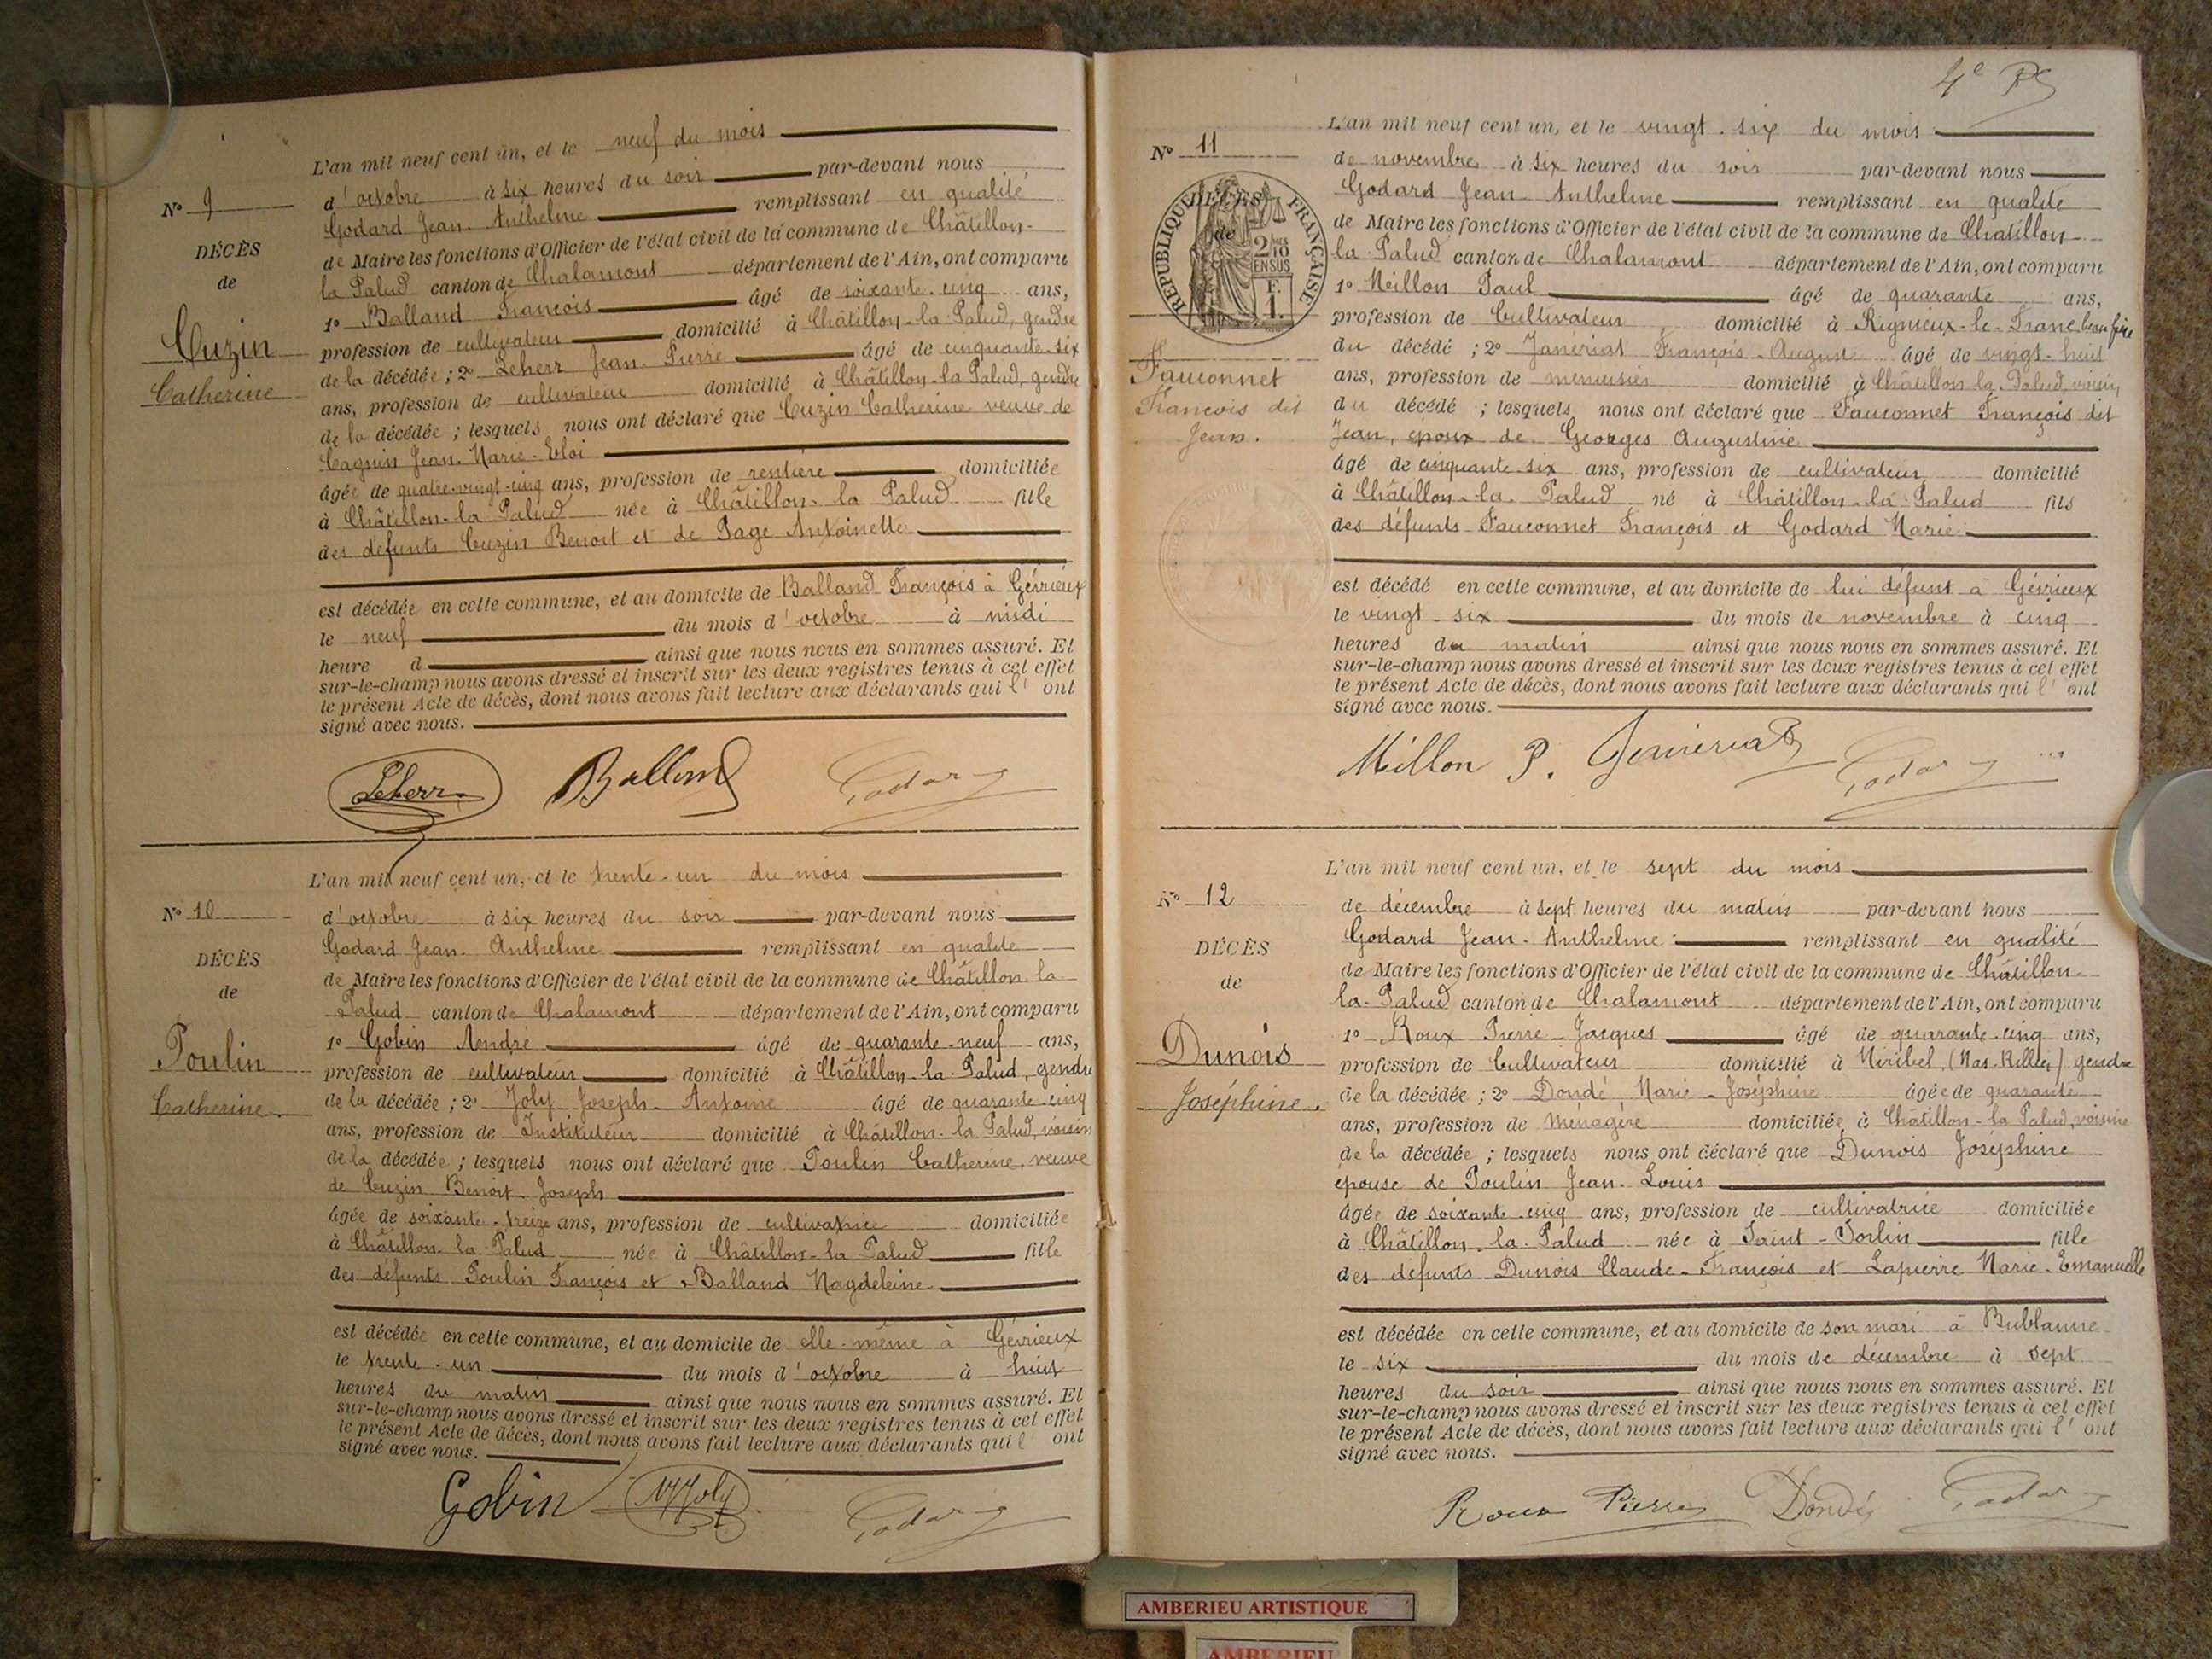 L'an mil neuf cent un, et le neuf du mois
N° 9
d'octobre à six heures du soir par-devant nous
Godard Jean-Anthelme remplissant en qualité
DÉCÈS
de Maire les fonctions d'Officier de l'état civil de la commune de Châtillon-
de
la Palud canton de Chalamont département de l'Ain, ont comparu
1° Balland François âgé de soixante-cinq ans,
Cuzin
profession de cultivateur domicilié à Châtillon-la-Palud, gendre
de la décédée ; 2° Leherr Jean-Pierre âgé de cinquante-six
Catherine
ans, profession de cultivateur domicilié à Châtillon-la-Palud, gendre
de la décédée ; lesquels nous ont déclaré que Cuzin Catherine veuve de
Cagnin Jean-Marie-Eloi
âgée de quatre-vingt-cinq ans, profession de rentière domiciliée
à Châtillon-la Palud née à Châtillon-la Palud fille
des défunts Cuzin Benoit et de Page Antoinette
est décédée en cette commune, et au domicile de Balland François à Gévrieux
le neuf du mois d'octobre à midi
heure d ainsi que nous nous en sommes assuré. Et
sur-le-champ nous avons dressé et inscrit sur les deux registres tenus à cet effet
le présent Acte de décès, dont nous avons fait lecture aux déclarants qui l'ont
signé avec nous.
Leherr Balland Godard
L'an mil neuf cent un, et le trente-un du mois
N° 10
d'octobre à six heures du soir par-devant nous
Godard Jean-Anthelme remplissant en qualité
DÉCÈS
de Maire les fonctions d'Officier de l'état civil de la commune de Châtillon la
de
Palud canton de Chalamont département de l'Ain, ont comparu
1° Gobin André âgé de quarante-neuf ans,
Poulin
profession de cultivateur domicilié à Châtillon-la-Palud, gendre
de la décédée ; 2° Joly Joseph-Antoine âgé de quarante-cinq
Catherine.
ans, profession de Instituteur domicilié à Châtillon-la Palud, voisin
de la décédée ; lesquels nous ont déclaré que Poulin Catherine, veuve
de Cuzin Benoit-Joseph
âgée de soixante-treize ans, profession de cultivatrice domiciliée
à Châtillon-la Palud née à Châtillon-la Palud fille
des défunts Poulin François et Balland Magdeleine
est décédée en cette commune, et au domicile de elle-même à Gévrieux
le trente-un du mois d'octobre à huit
heures du matin ainsi que nous nous en sommes assuré. Et
sur-le-champ nous avons dressé et inscrit sur les deux registres tenus à cet effet
le présent Acte de décès, dont nous avons fait lecture aux déclarants qui l'ont
signé avec nous.
Gobin Joly Godard
4e
L'an mil neuf cent un, et le vingt-six du mois
N° 11
de novembre à six heures du soir par-devant nous
Godard Jean-Anthelme remplissant en qualité
DÉCÈS
de
RÉPUBLIQUE FRANÇAISE
2/10 EN SUS
F. 1.
de Maire les fonctions d'Officier de l'état civil de la commune de Châtillon
la-Palud canton de Chalamont département de l'Ain, ont comparu
1° Millon Paul âgé de quarante ans,
profession de Cultivateur domicilié à Rignieux-le-Franc beau frère
du décédé ; 2° Janériat François-Auguste âgé de vingt-huit
Fauconnet
ans, profession de menuisier domicilié à Châtillon la Palud, voisin
François dit
du décédé ; lesquels nous ont déclaré que Fauconnet François dit
Jean.
Jean, époux de Georges Augustine
âgé de cinquante-six ans, profession de cultivateur domicilié
à Châtillon-la-Palud né à Châtillon-la-Palud fils
des défunts Fauconnet François et Godard Marie
est décédé en cette commune, et au domicile de lui défunt à Gévrieux
le vingt-six du mois de novembre à cinq
heures du matin ainsi que nous nous en sommes assuré. Et
sur-le-champ nous avons dressé et inscrit sur les deux registres tenus à cet effet
le présent Acte de décès, dont nous avons fait lecture aux déclarants qui l'ont
signé avec nous.
Millon P. Janériat Godard
L'an mil neuf cent un, et le sept du mois
N° 12
de décembre à sept heures du matin par-devant nous
Godard Jean-Anthelme remplissant en qualité
DÉCÈS
de Maire les fonctions d'Officier de l'état civil de la commune de Châtillon-
de
la-Palud canton de Chalamont département de l'Ain, ont comparu
1° Roux Pierre-Jacques âgé de quarante-cinq ans,
Dunois
profession de Cultivateur domicilié à Miribel, (Mas-Rillier) gendre
de la décédée ; 2° Dondé Marie-Joséphine âgée de quarante
Joséphine.
ans, profession de Ménagère domiciliée à Châtillon-la Palud, voisine
de la décédée ; lesquels nous ont déclaré que Dunois Joséphine
épouse de Poulin Jean-Louis
âgée de soixante-cinq ans, profession de cultivatrice domiciliée
à Châtillon-la-Palud née à Saint-Sorlin fille
des défunts Dunois Claude-François et Lapierre Marie-Emanuelle
est décédée en cette commune, et au domicile de son mari à Bublanne
le six du mois de décembre à sept
heures du soir ainsi que nous nous en sommes assuré. Et
sur-le-champ nous avons dressé et inscrit sur les deux registres tenus à cet effet
le présent Acte de décès, dont nous avons fait lecture aux déclarants qui l'ont
signé avec nous.
Roux Pierre Dondé Godard
AMBERIEU ARTISTIQUE
AMBERIEU